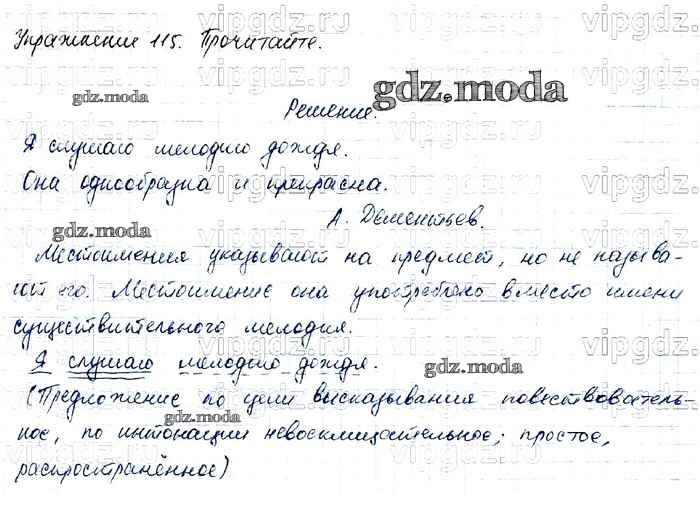 Упражнение 115. Прочитайте.
Решение.
Я слушаю мелодию дождя.
Она однообразна и прекрасна.
А. Дементьев.
Местоимения указывают на предмет, но не называ-
ют его. Местоимение она употреблено вместо имени
существительного мелодия.
Я слушаю мелодию дождя.
(Предложение по цели высказывания повествователь-
ное, по интонации невосклицательное; простое,
распространённое)
gdz.moda
gdz.moda
gdz.moda
gdz.moda
gdz.moda
vipgdz.ru